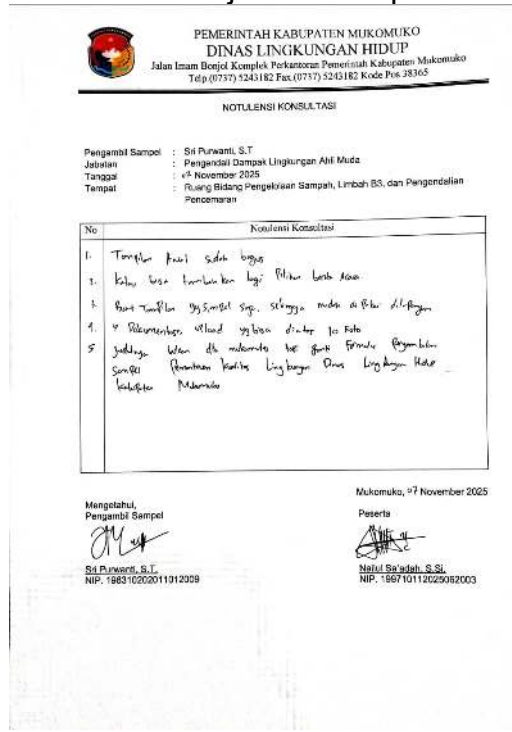 PEMERINTAH KABUPATEN MUKOMUKO
DINAS LINGKUNGAN HIDUP
Jalan Imam Bonjol Komplek Perkantoran Pemerintah Kabupaten Mukomuko
Telp.(0737) 5243182 Fax.(0737) 5243182 Kode Pos 38365
NOTULENSI KONSULTASI
Pengambil Sampel : Sri Purwanti, S.T
Jabatan : Pengendali Dampak Lingkungan Ahli Muda
Tanggal : November 2025
Tempat : Ruang Bidang Pengelolaan Sampah, Limbah B3, dan Pengendalian
Pencemaran
No Notulensi Konsultasi
1. Tampilan Awal sudah bagus
2. Kalau bisa tambahkan lagi Pilihan berita Acara
3. Buat Tampilan yg simpel saja, sehingga mudah di dilapangan
4. Dokumentasi upload yg bisa 10 Foto
5 Judulnya dlh mukomuko ganti Formulir Pengambilan
Sampel Pemantauan Kualitas Lingkungan Dinas Lingkungan Hidup
Kabupaten Mukomuko
Mukomuko, 07 November 2025
Mengetahui,
Pengambil Sampel
Peserta
Sri Purwanti, S.T.
NIP. 198310202011012009
Nailul Sa'adah, S.Si.
NIP. 199710112025062003